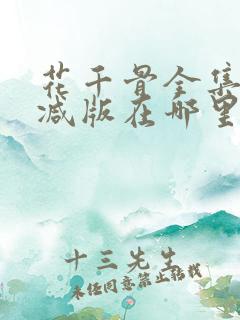 花千骨全集
减版在哪里
十三先生
未经同意禁止转载